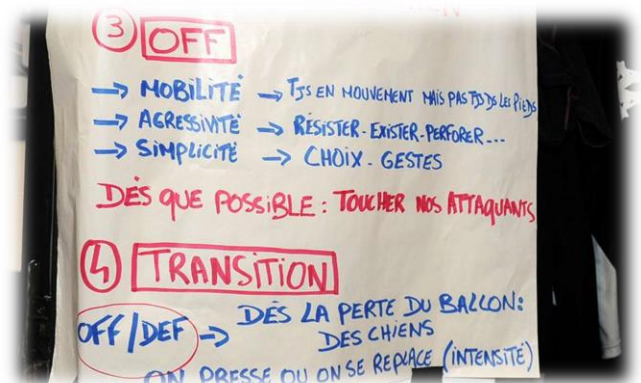 ③ OFF
→ MOBILITÉ → TJS EN MOUVEMENT MAIS PAS TJS DS LES PIEDS
→ AGRESSIVITÉ → RÉSISTER - EXISTER - PERFORER...
→ SIMPLICITÉ → CHOIX - GESTES
DÈS QUE POSSIBLE : TOUCHER NOS ATTAQUANTS
④ TRANSITION
OFF/DEF → DÈS LA PERTE DU BALLON :
DES CHIENS
ON PRESSE OU ON SE REPLACE (INTENSITÉ)